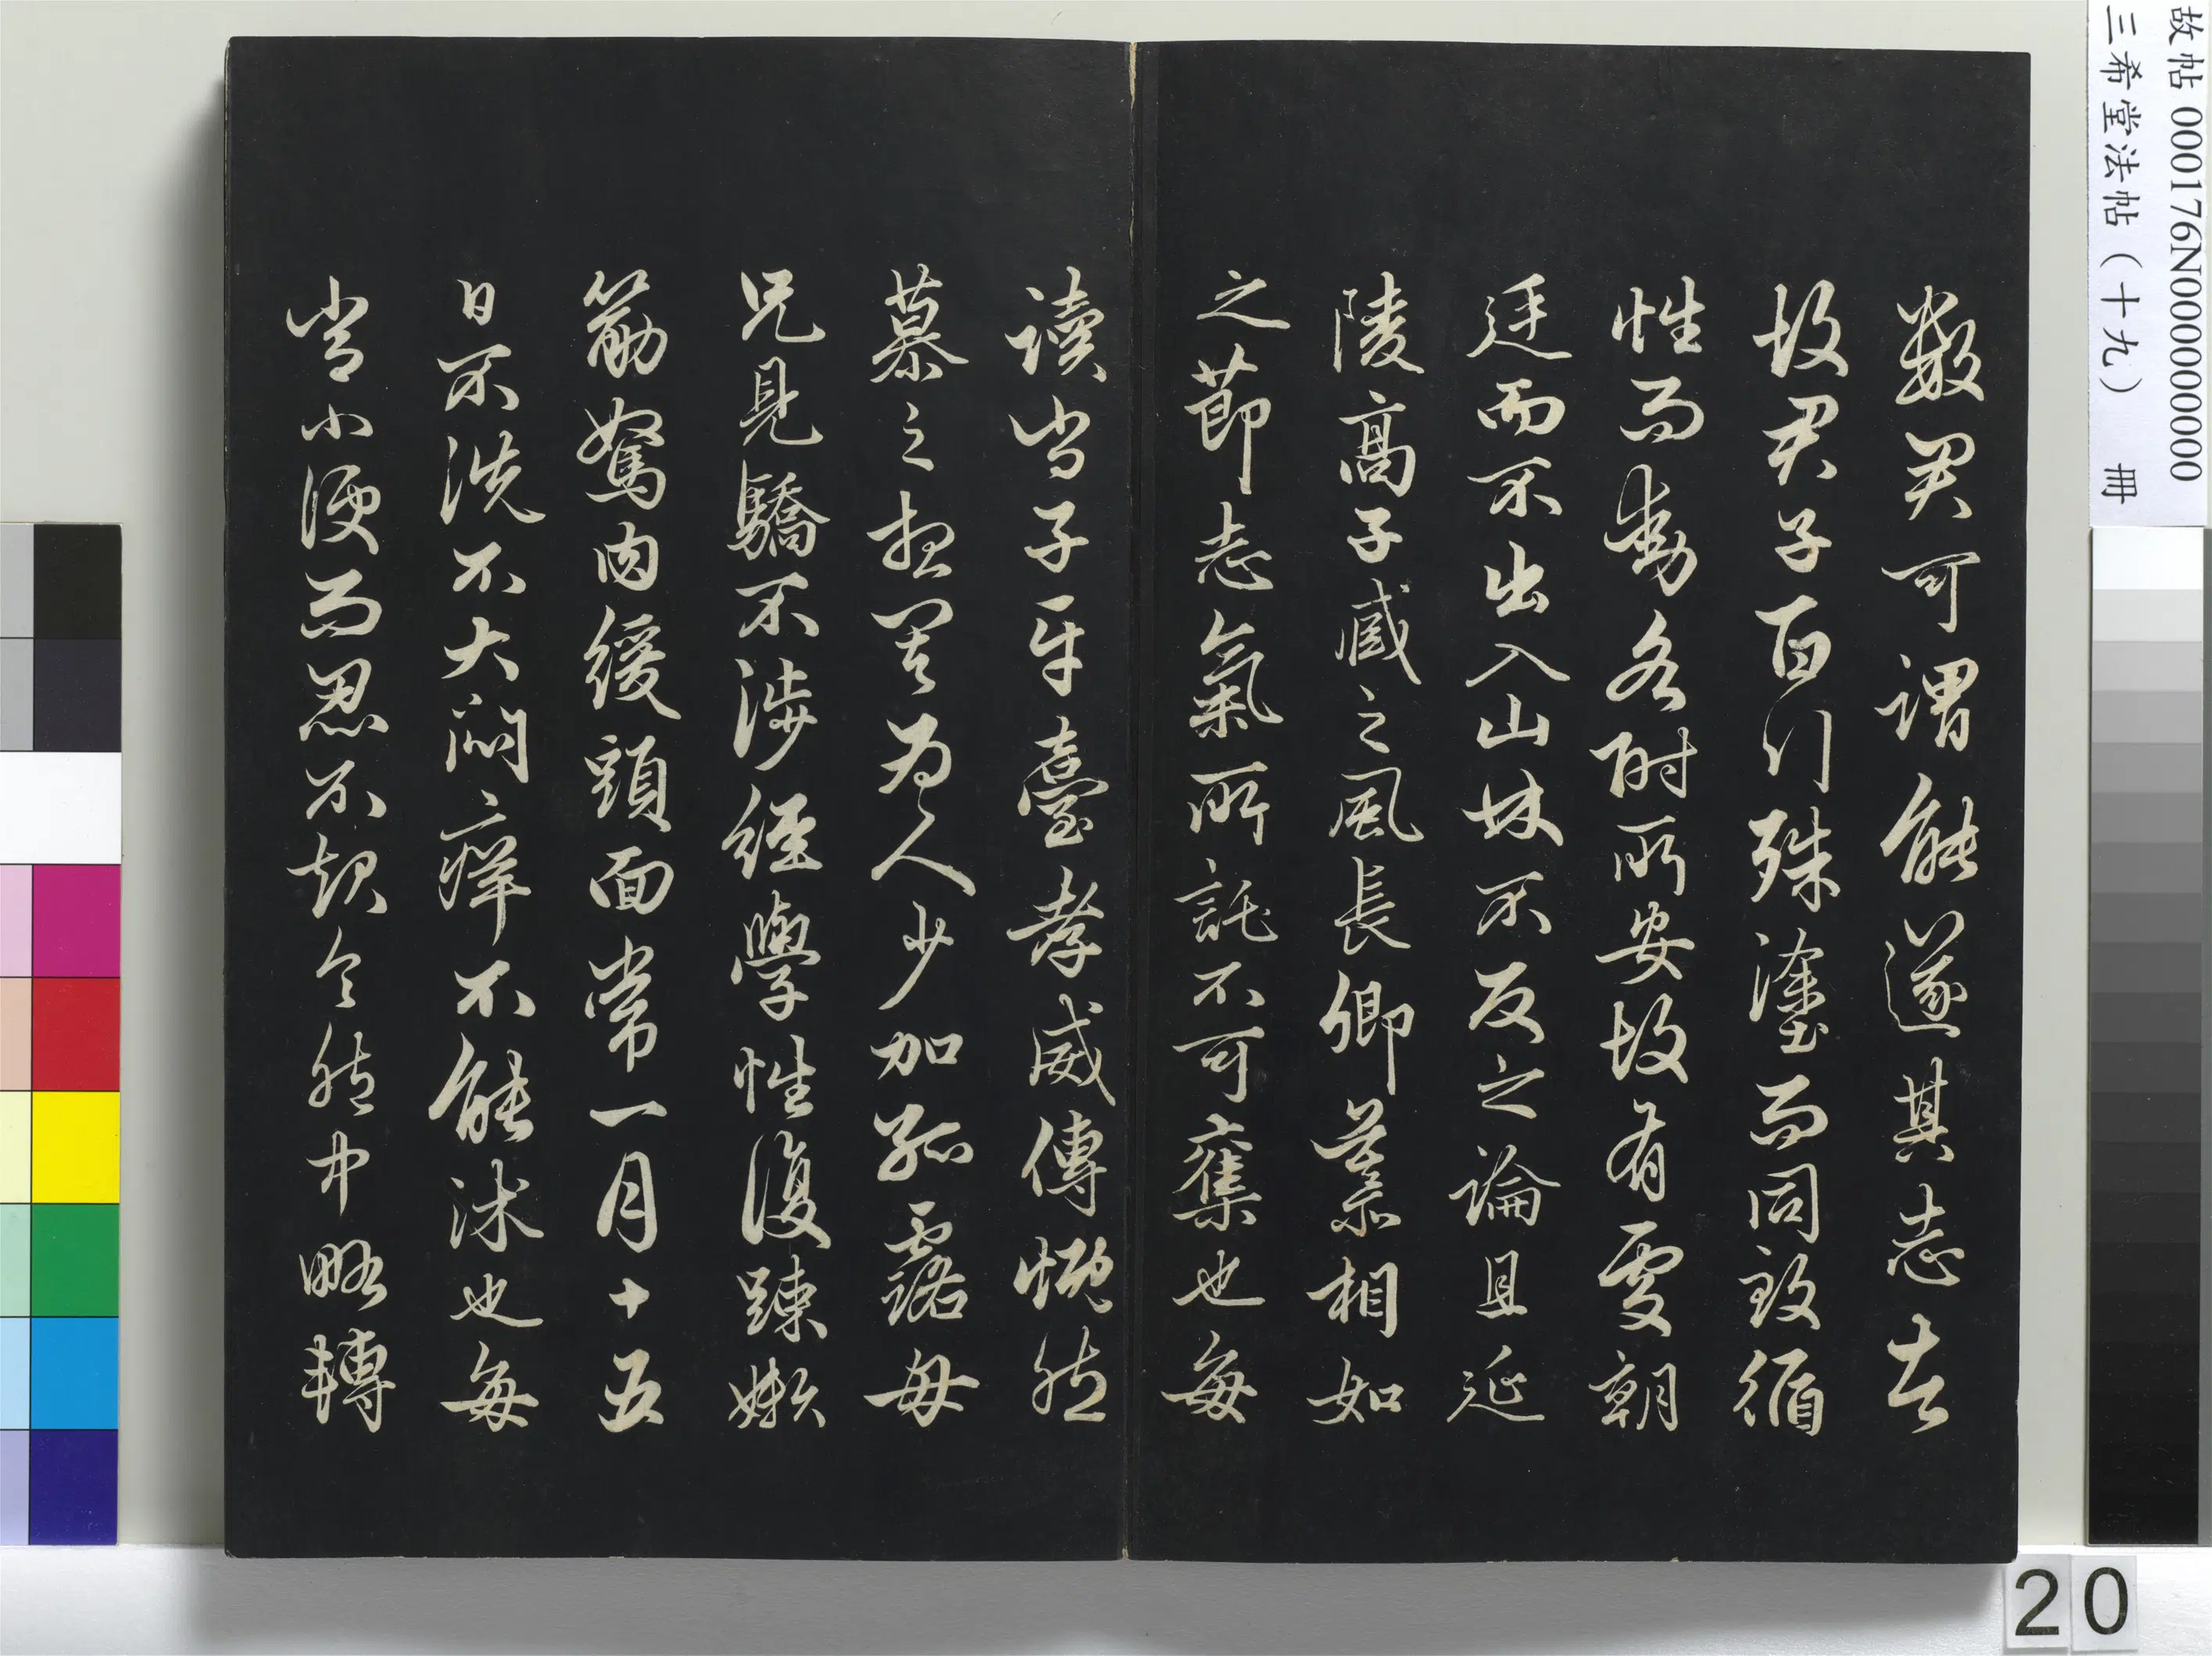 故帖 000176N000000000
三希堂法帖（十九） 冊
數君可謂能遂其志者
故君子百行殊塗而同致循
性而動各附所安故有處朝
廷而不出入山林不反之論且延
陵高子臧之風長卿慕相如
之節志氣所託不可奪也每
讀尚子平臺孝威傳慨然
慕之想其為人少加孤露母
兄見驕不涉經學性復踈嬾
筋駑肉緩頭面常一月十五
日不洗不大悶癢不能沐也每
常小便而忍不起令胞中略轉
20